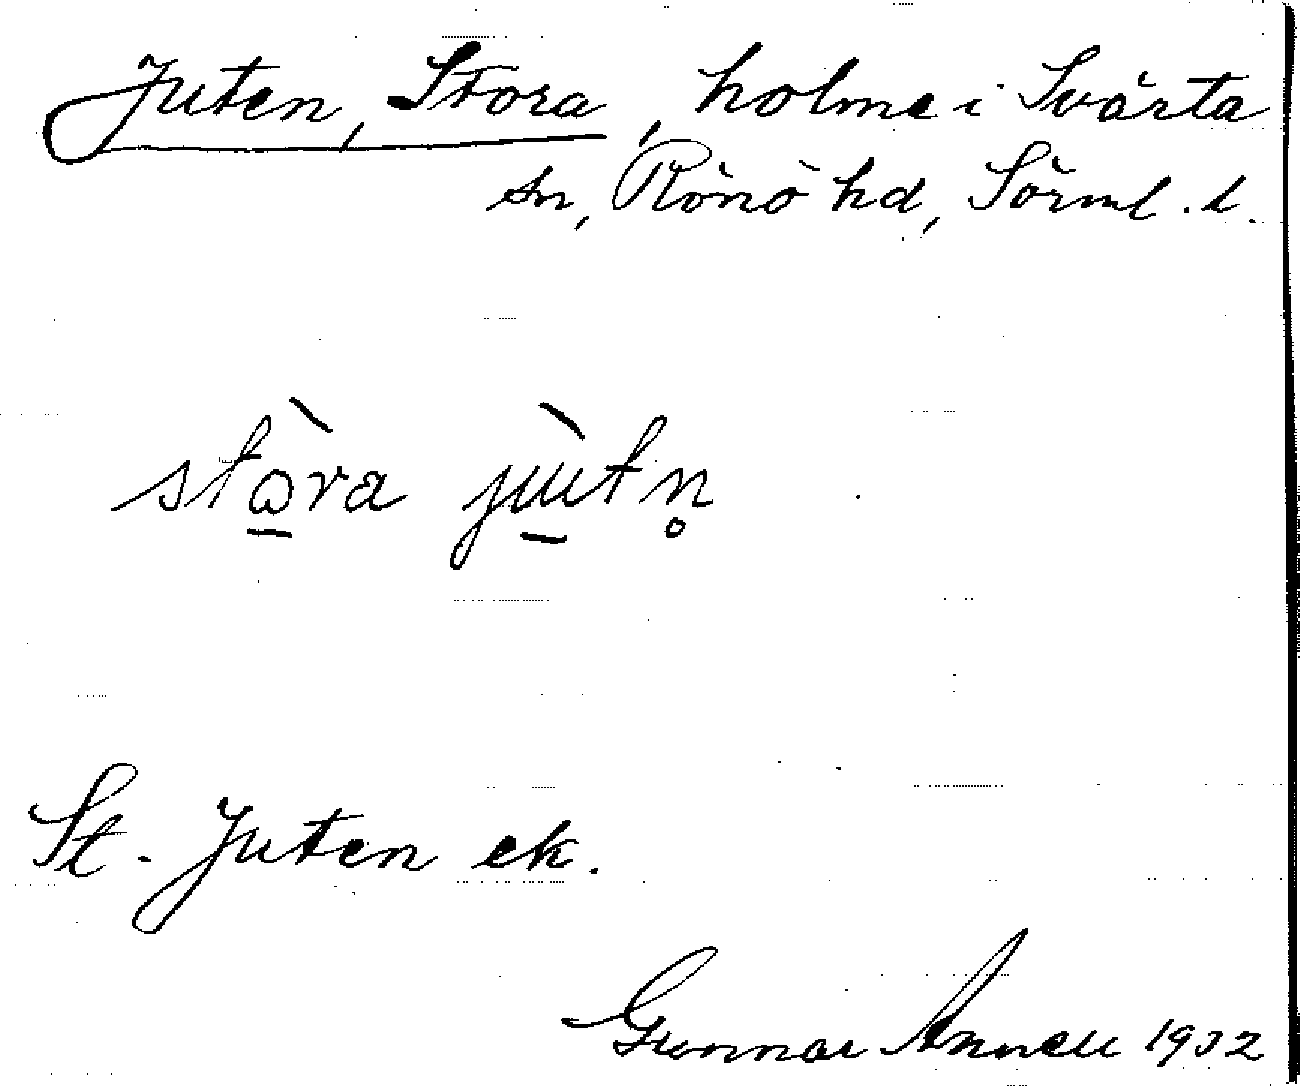 Juten, Stora, holme i Svärta
sn, Rönö hd, Sörml. l.
stὼ̲ra jɯ̲̀tn̥
St. Juten ek.
Gunnar Annell 1932